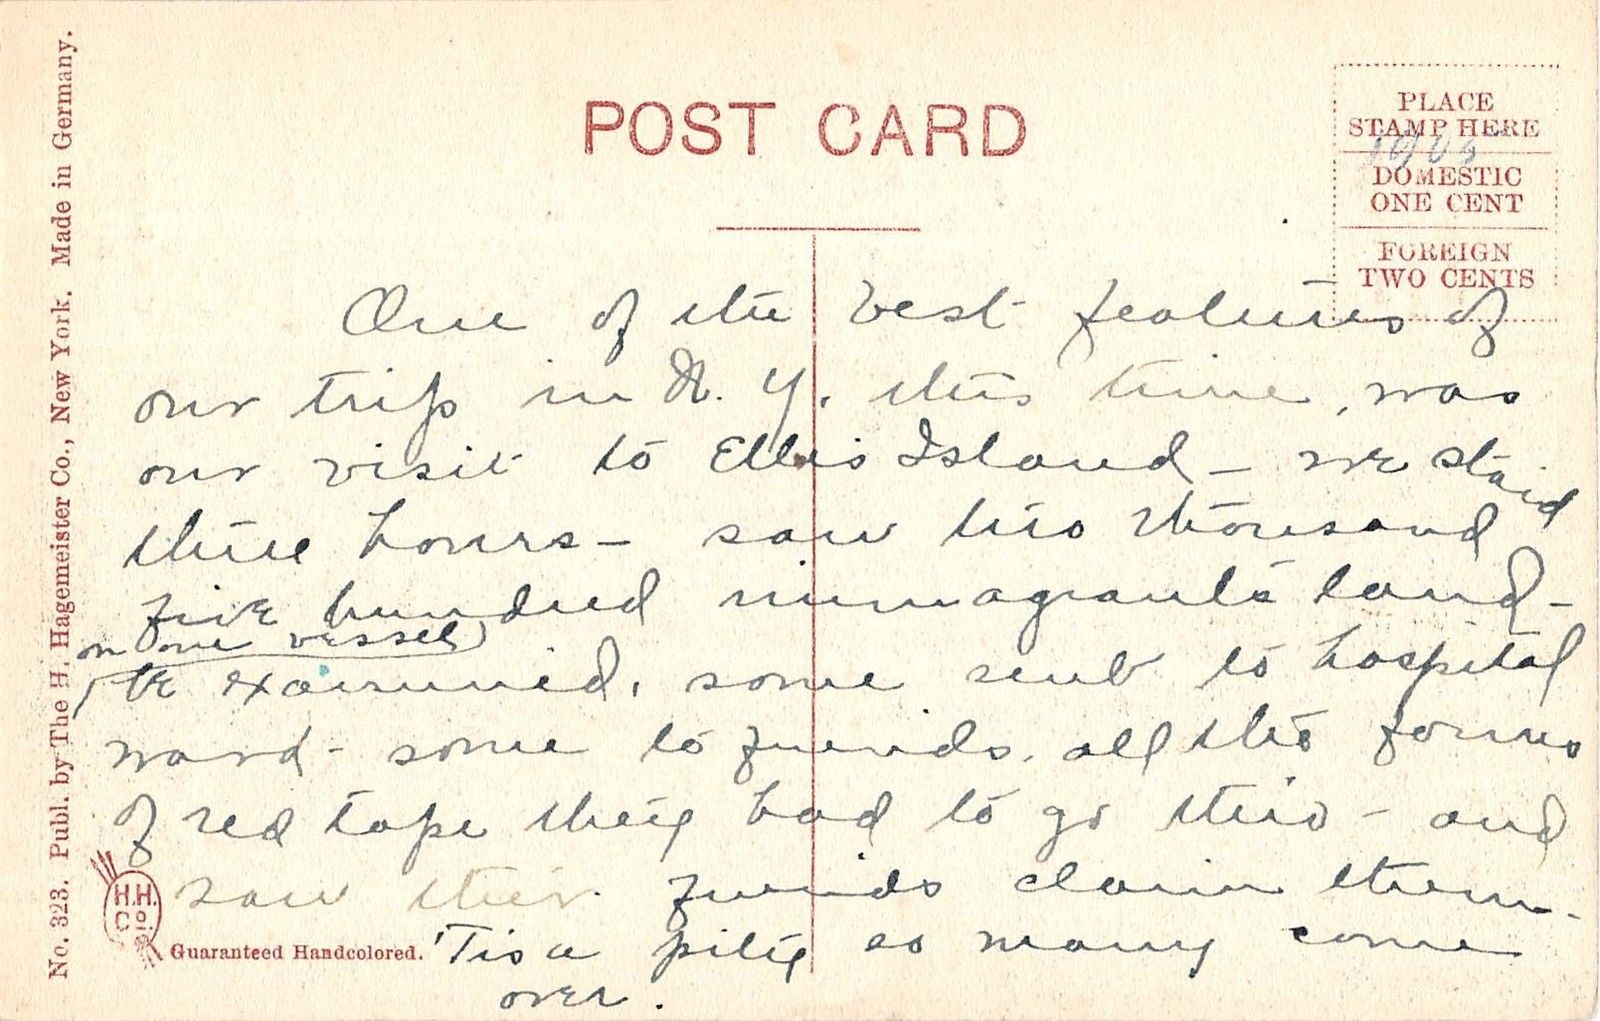 POST CARD
PLACE
STAMP HERE
DOMESTIC
ONE CENT
FOREIGN
TWO CENTS
One of the best features of
our trip in N. Y. this time, was
our visit to Ellis Island – we staid
three hours – saw two thousand
five hundred immagrants land –
on one vessel
be examined, some sent to hospital
ward – some to friends, all the forms
of red tape they had to go thro – and
saw their friends claim them.
'Tis a pity so many come
over.
H.H.
Co.
Guaranteed Handcolored.
No. 323. Publ. by The H. Hagemeister Co., New York. Made in Germany.